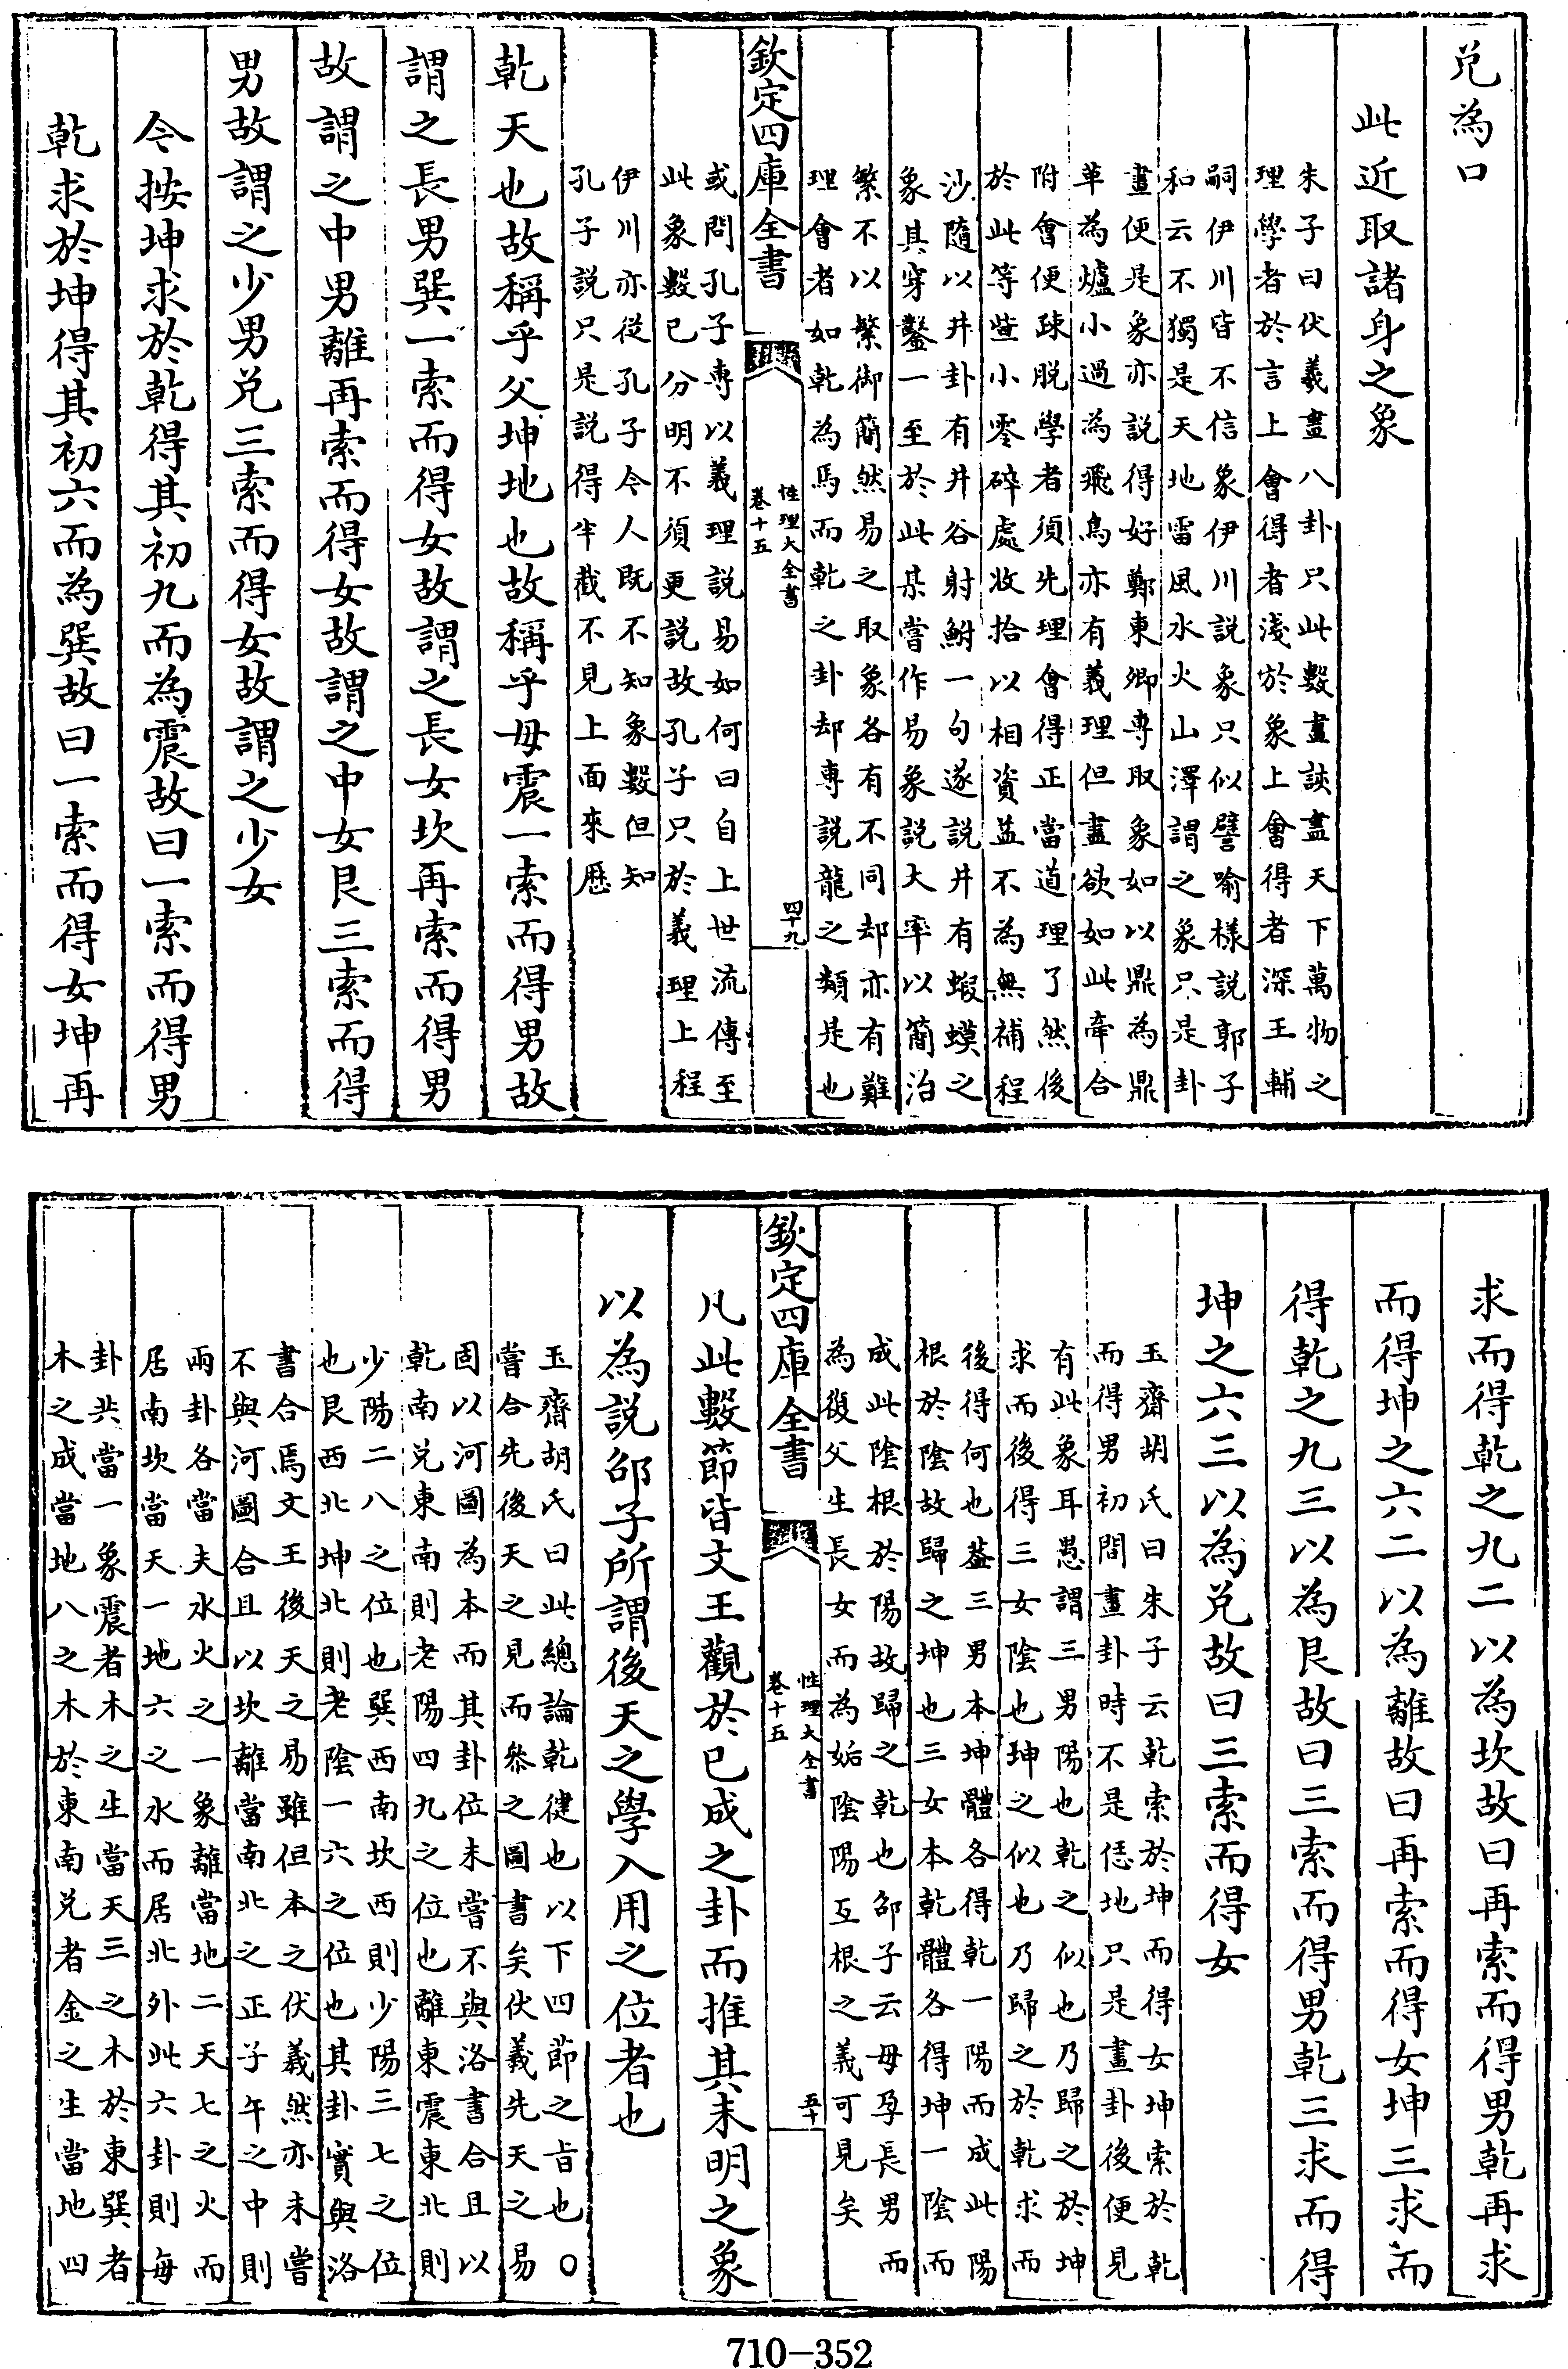 兌為口
此近取諸身之象
朱子曰伏羲畫八卦只此數畫該盡天下萬物之
理學者於言上會得者淺於象上會得者深王輔
嗣伊川皆不信象伊川說象只似譬喻樣說郭子
和云不獨是天地雷風水火山澤謂之象只是卦
畫便是象亦說得好鄭東卿專取象如以鼎為鼎
革為爐小過為飛鳥亦有義理但盡欲如此牽合
附會便疎脫學者須先理會得正當道理了然後
於此等些小零碎處收拾以相資益不為無補程
沙隨以井卦有井谷射鮒一句遂說井有蝦蟆之
象其穿鑿一至於此某嘗作易象說大率以簡治
繁不以繁御簡然易之取象各有不同却亦有難
理會者如乾為馬而乾之卦却專說龍之類是也
欽定四庫全書
性理大全書
卷十五
四十九
或問孔子専以義理說易如何曰自上世流傳至
此象數已分明不須更說故孔子只於義理上程
伊川亦從孔子今人既不知象數但知
孔子說只是說得半截不見上面來歷
乾天也故稱乎父坤地也故稱乎母震一索而得男故
謂之長男巽一索而得女故謂之長女坎再索而得男
故謂之中男離再索而得女故謂之中女艮三索而得
男故謂之少男兌三索而得女故謂之少女
今按坤求於乾得其初九而為震故曰一索而得男
乾求於坤得其初六而為巽故曰一索而得女坤再
求而得乾之九二以為坎故曰再索而得男乾再求
而得坤之六二以為離故曰再索而得女坤三求而
得乾之九三以為艮故曰三索而得男乾三求而得
坤之六三以為兌故曰三索而得女
玉齋胡氏曰朱子云乾索於坤而得女坤索於乾
而得男初間畫卦時不是恁地只是畫卦後便見
有此象耳愚謂三男陽也乾之似也乃歸之於坤
求而後得三女陰也坤之似也乃歸之於乾求而
後得何也蓋三男本坤體各得乾一陽而成此陽
根於陰故歸之坤也三女本乾體各得坤一陰而
成此陰根於陽故歸之乾也邵子云母孕長男而
為復父生長女而為姤陰陽互根之義可見矣
欽定四庫全書
性理大全書
卷十五
五十
凡此數節皆文王觀於已成之卦而推其未明之象
以為說邵子所謂後天之學入用之位者也
玉齋胡氏曰此總論乾健也以下四節之旨也○
嘗合先後天之見而叅之圖書矣伏羲先天之易
固以河圖為本而其卦位未嘗不與洛書合且以
乾南兌東南則老陽四九之位也離東震東北則
少陽二八之位也巽西南坎西則少陽三七之位
也艮西北坤北則老陰一六之位也其卦實與洛
書合焉文王後天之易雖但本之伏羲然亦未嘗
不與河圖合且以坎離當南北之正子午之中則
兩卦各當夫水火之一象離當地二天七之火而
居南坎當天一地六之水而居北外此六卦則每
卦共當一象震者木之生當天三之木於東巽者
木之成當地八之木於東南兌者金之生當地四
710-352